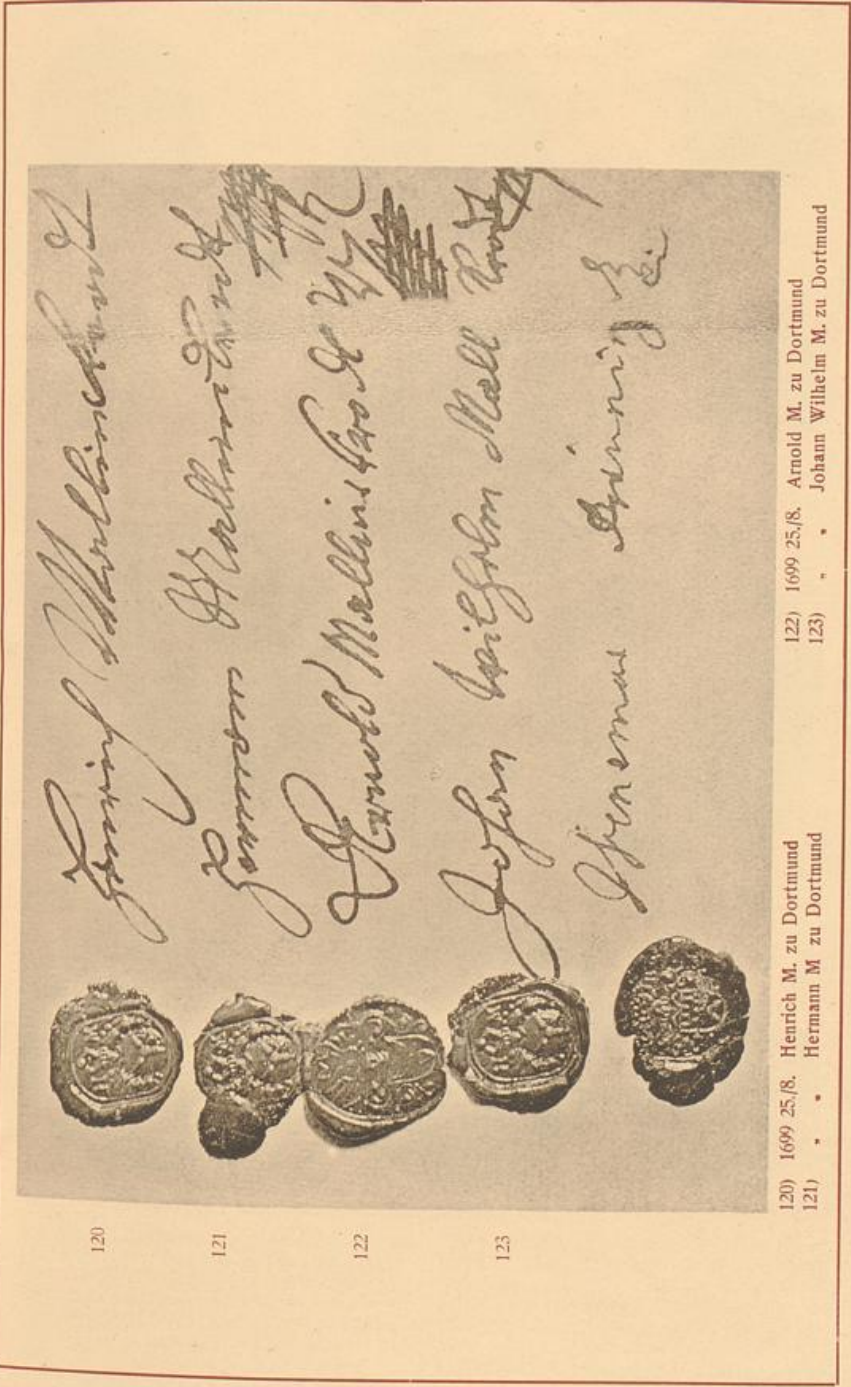 120
Henrich Mallinckrodt
121
Herman Mallinckrodt
122
Arnold Mallinckrodt
123
Johan Wilhelm Mallinckrodt
120) 1699 25./8. Henrich M. zu Dortmund
121) „ „ Hermann M zu Dortmund
122) 1699 25./8. Arnold M. zu Dortmund
123) „ „ Johann Wilhelm M. zu Dortmund